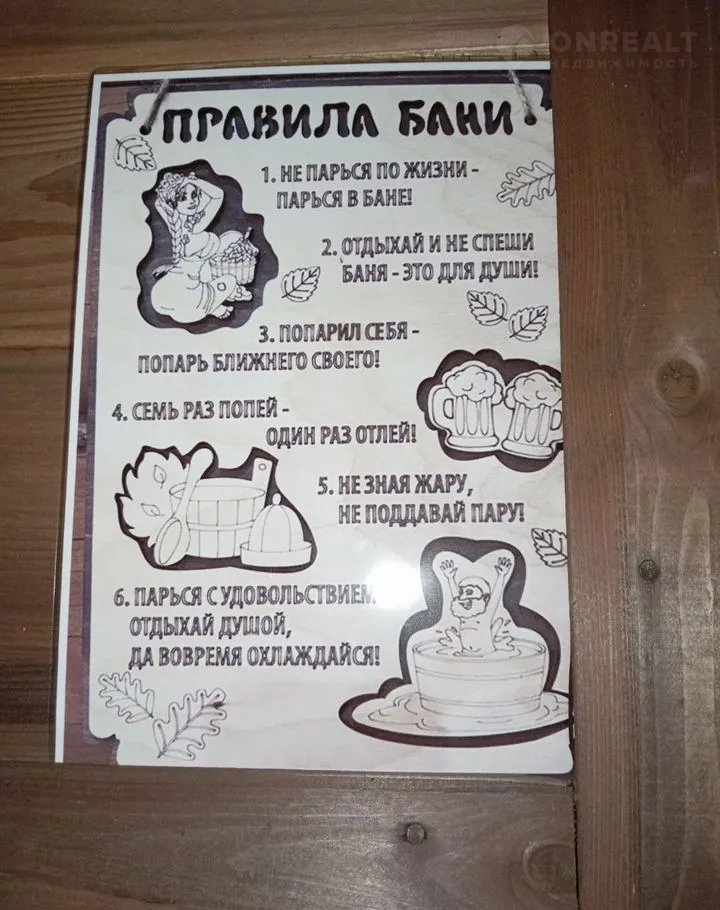 ONREALT
НЕДВИЖИМОСТЬ
ПРАВИЛА БАНИ
1. НЕ ПАРЬСЯ ПО ЖИЗНИ -
ПАРЬСЯ В БАНЕ!
2. ОТДЫХАЙ И НЕ СПЕШИ
БАНЯ - ЭТО ДЛЯ ДУШИ!
3. ПОПАРИЛ СЕБЯ -
ПОПАРЬ БЛИЖНЕГО СВОЕГО!
4. СЕМЬ РАЗ ПОПЕЙ -
ОДИН РАЗ ОТЛЕЙ!
5. НЕ ЗНАЯ ЖАРУ,
НЕ ПОДДАВАЙ ПАРУ!
6. ПАРЬСЯ С УДОВОЛЬСТВИЕМ
ОТДЫХАЙ ДУШОЙ,
ДА ВОВРЕМЯ ОХЛАЖДАЙСЯ!